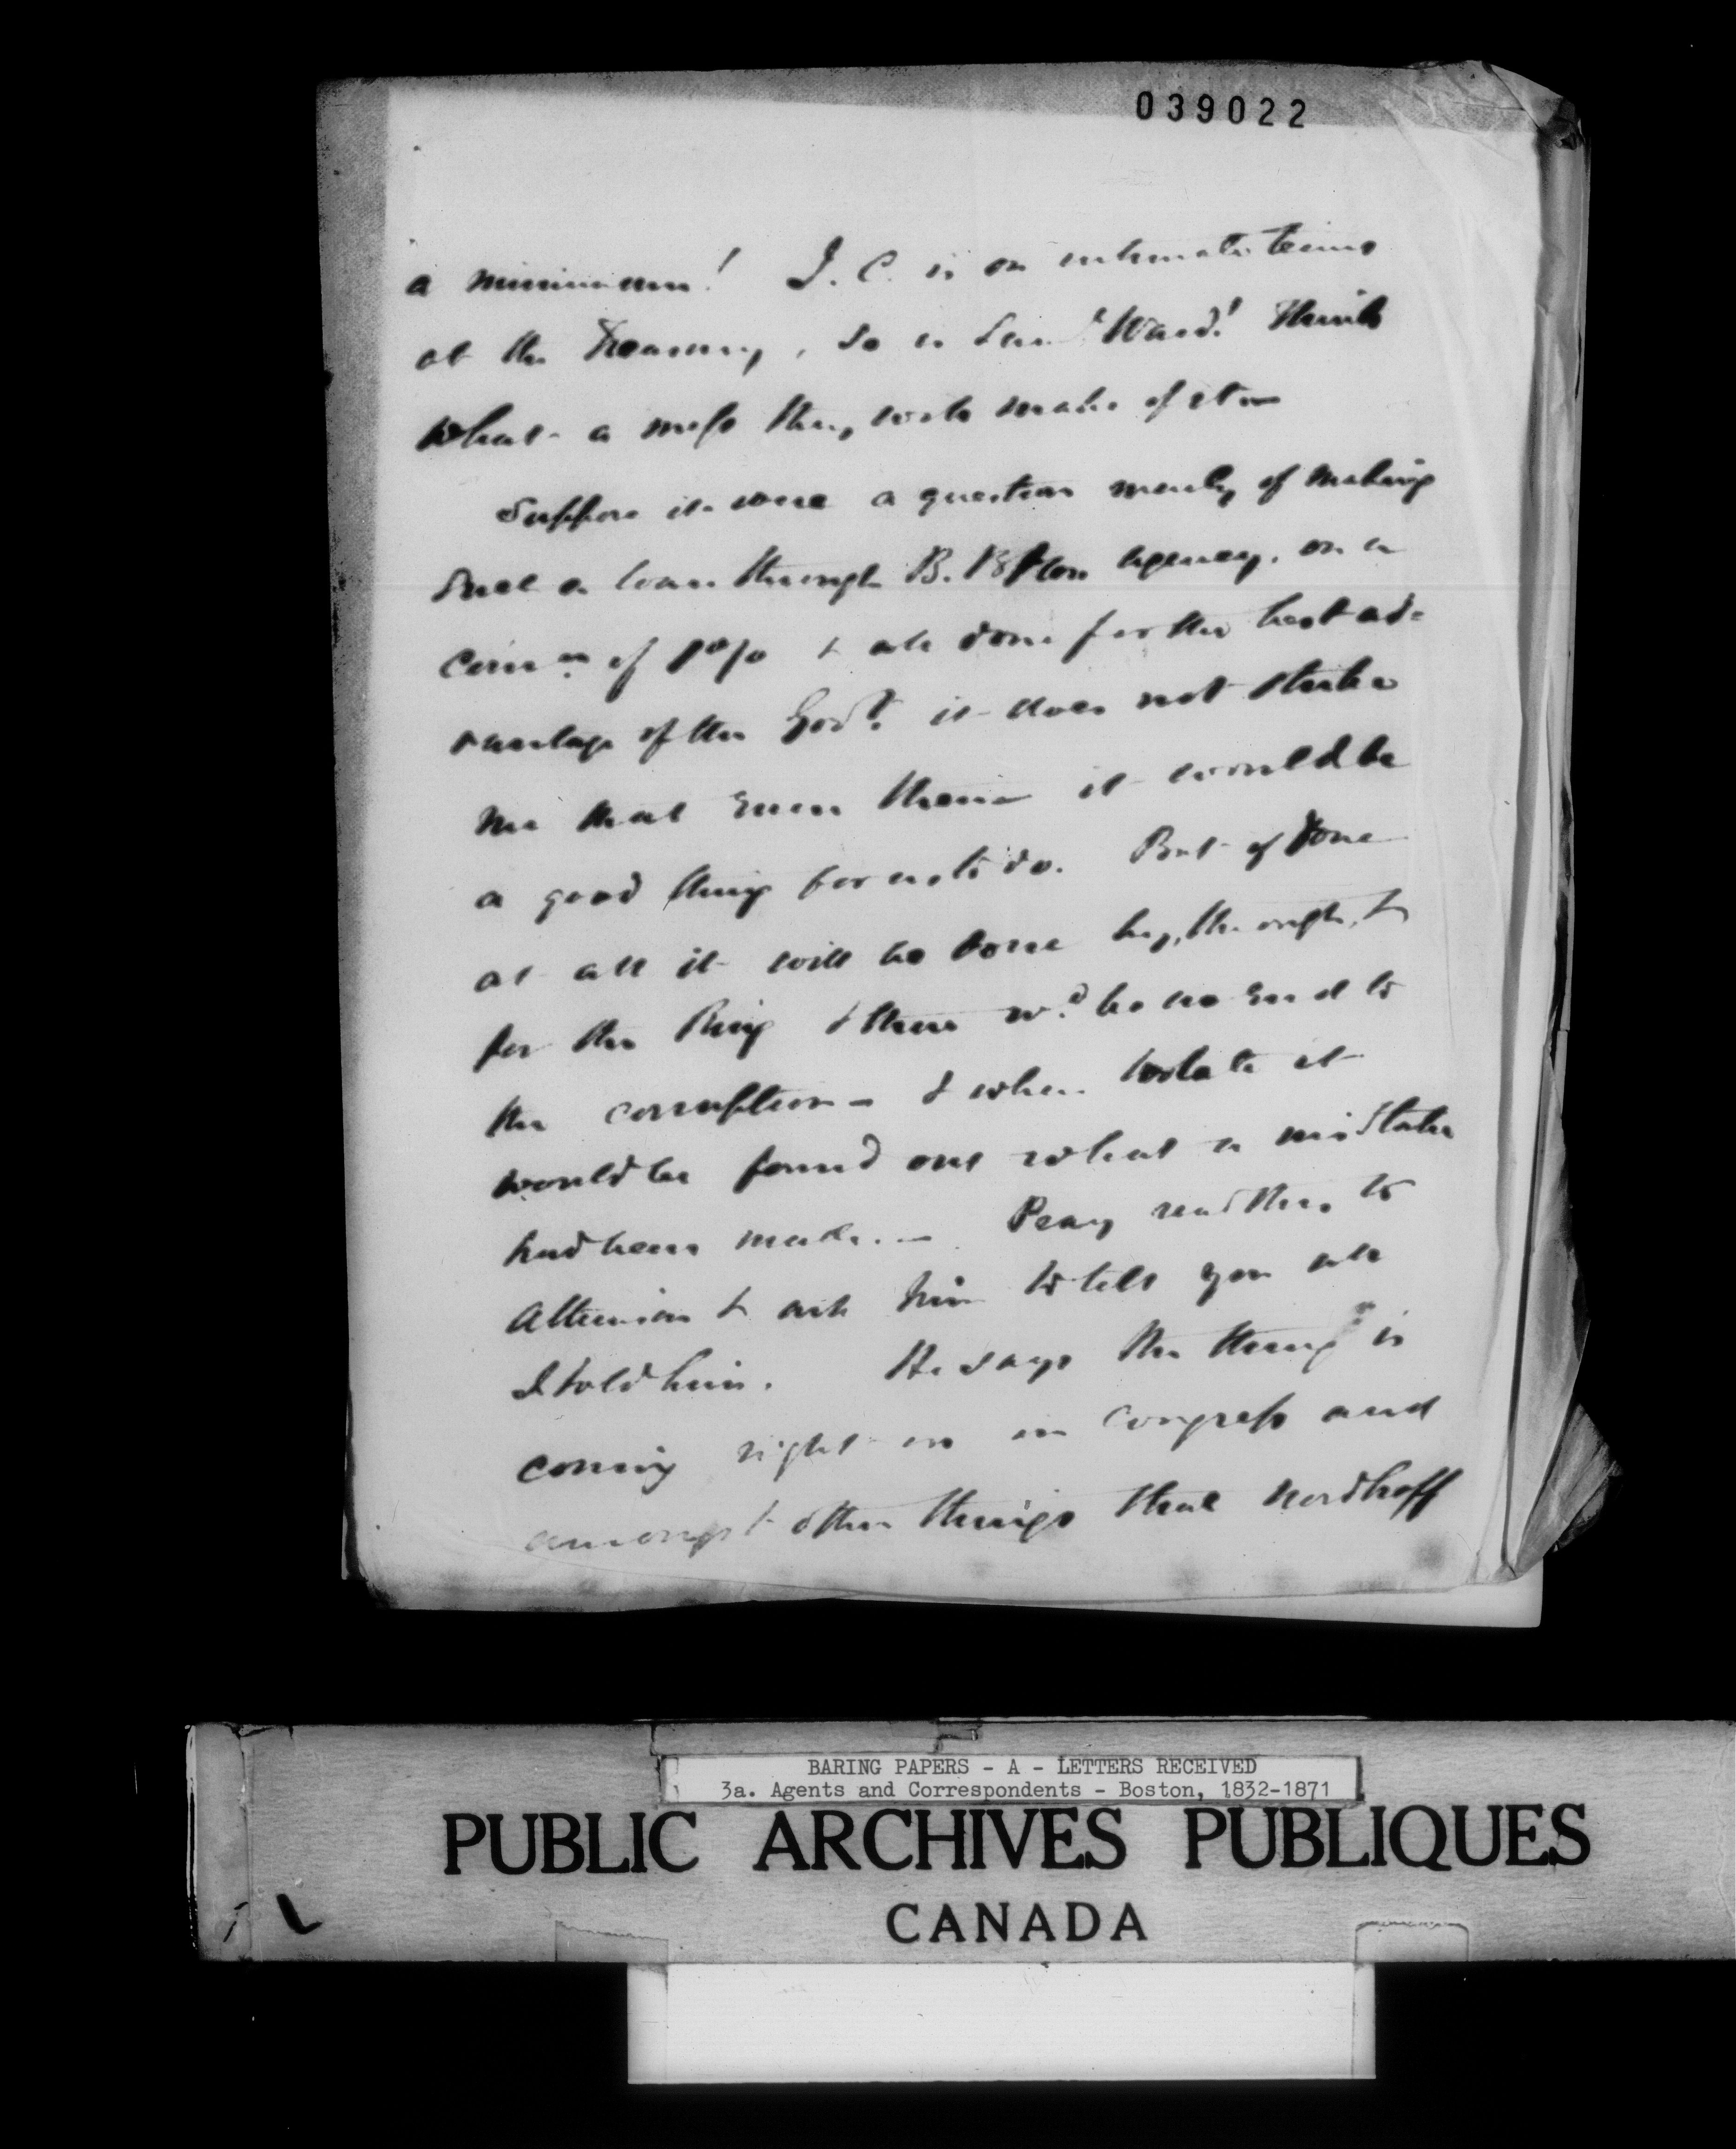 039022
a minimum! J. C. is on intimate terms
at the Treasury, so is Saml Ward! Think
what a mess they will make of it —
Suppose it were a question merely of making
such a loan through B. B & Co's agency, on a
comn of 1% & all done for the best ad-
vantage of the Govt. it does not strike
me that even then it would be
a good thing for us to do. But if done
at all it will be done by, through, &
for the Ring & there wd be no end to
the corruption — & when too late it
would be found out what a mistake
had been made. — Pray read this to
Atkinson & ask him to tell you all
I told him. He says the thing is
coming right on in Congress and
amongst other things that Nordhoff
BARING PAPERS - A - LETTERS RECEIVED
3a. Agents and Correspondents - Boston, 1832-1871
PUBLIC ARCHIVES PUBLIQUES
CANADA